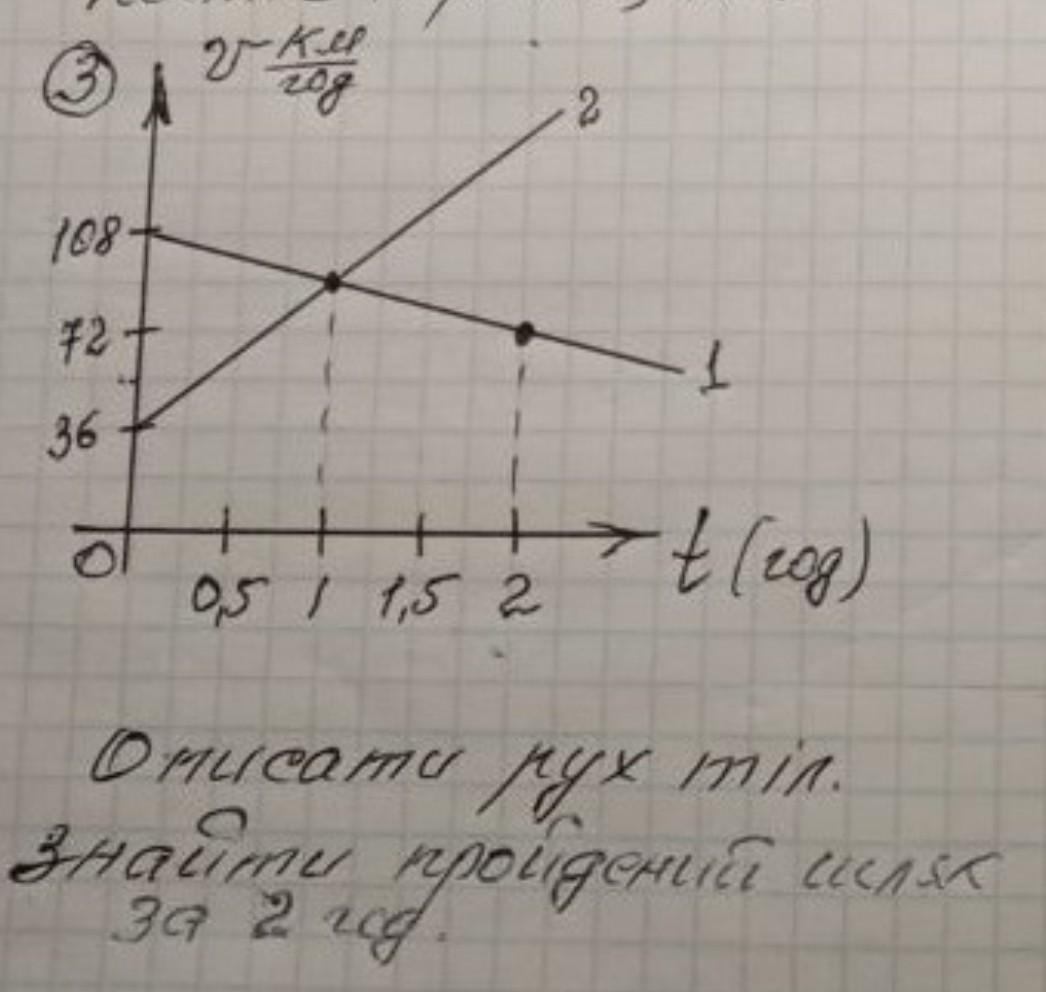 3 v км/год
2
108
72
1
36
0
0,5 1 1,5 2 t (год)
Описати рух тіл.
Знайти пройдений шлях
за 2 год.